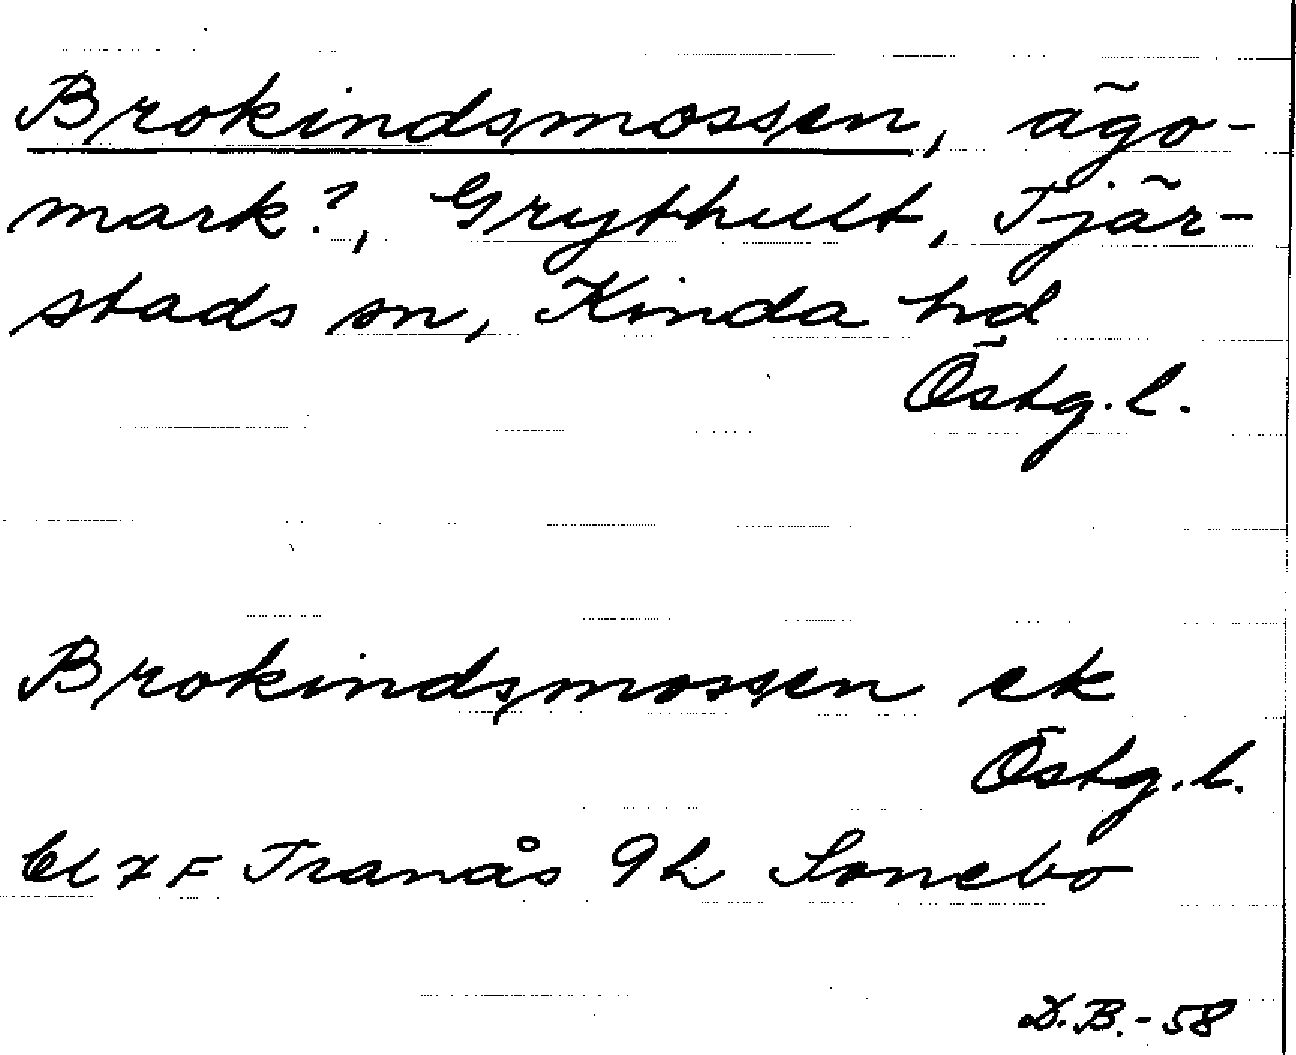 Brokindsmossen, ägo-
mark?, Grythult, Tjär-
stads sn, Kinda hd
Östg. l.
Brokindsmossen ek
Östg. l.
7 F Tranås 9h Sonebo
D.B.-58